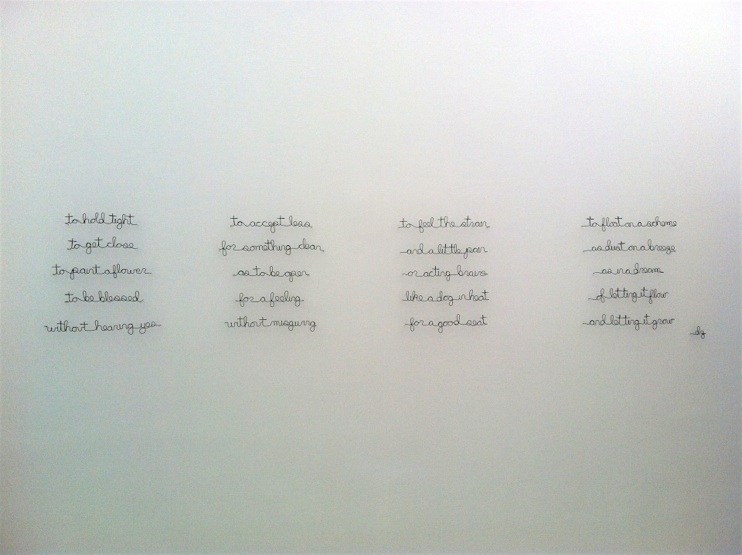 to hold tight
to get close
to paint a flower
to be blessed
without hearing yes
to accept less
for something clear
as to be open
for a feeling
without misgiving
to feel the strain
and a little pain
or acting brave
like a dog in heat
for a good seat
to float on a scheme
as dust on a breeze
as in a dream
of letting it flow
and letting it grow